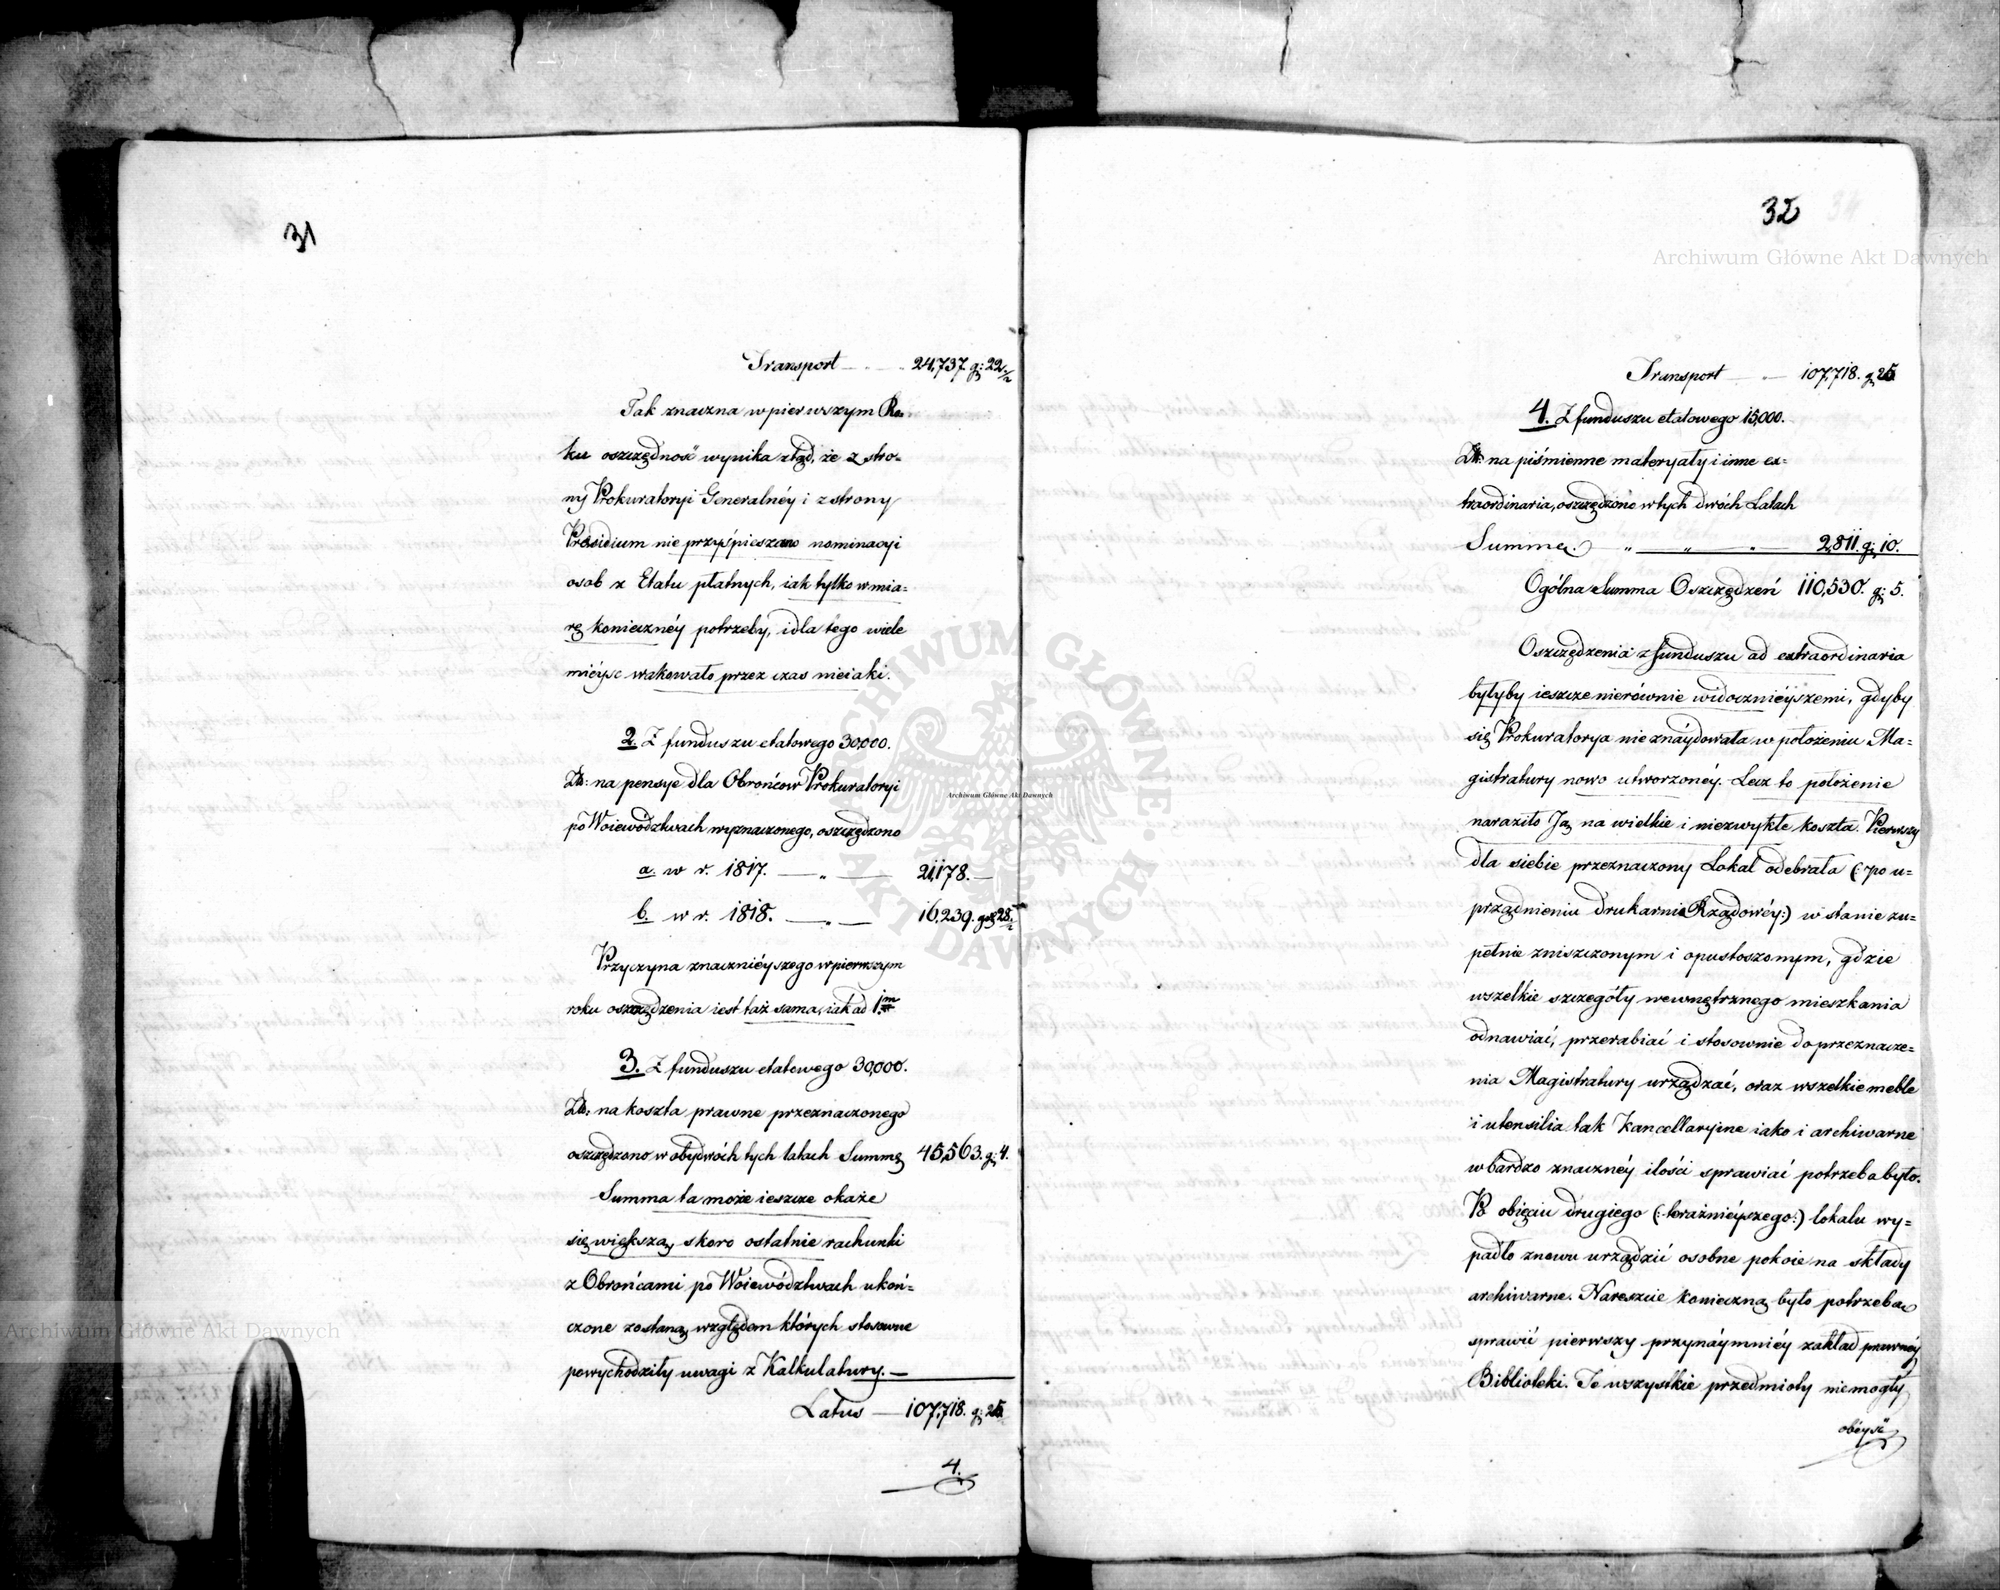 31
Transport — . — 24,737. gr: 22 1/2
Tak znaczna w pierwszym Ro-
ku oszczędność wynika ztąd, że z stro-
ny Prokuratoryi Generalnéy i z strony
Præsidium nie przyśpieszano nominacyi
osob z Etatu płatnych, iak tylko w mia-
rę konieczney potrzeby, i dla tego wiele
mieysc wakowało przez czas nieiaki.
2. Z funduszu etatowego 30,000.
Złt: na pensye dla Obrońcow Prokuratoryi
po Woiewództwach wyznaczonego, oszczędzono
a. w r. 1817. — „ — 21,178. —
b. w r. 1818. — „ — 16,239. gr 28 1/2
Przyczyna znacznieyszego w pierwszym
roku oszczędzenia iest taż sama, iak ad 1m
3. Z funduszu etatowego 30,000.
Złt: na koszta prawne przeznaczonego
oszczędzono w obydwóch tych latach Summę 45,563. gr: 4.
Summa ta może ieszcze okaże
się większą, skoro ostatnie rachunki
z Obrońcami po Woiewództwach ukoń-
czone zostaną względem których stosowne
powychodziły uwagi z Kalkulatury. —
Latus — 107,718. gr: 25
4.
32
Transport — „ — 107,718. gr 25
4. Z funduszu etatowego 15,000.
Złt: na piśmienne materyały i inne ex-
traordinaria, oszczędzono w tych dwóch Latach
Summę. „ — „ — „ — 2,811. gr: 10.
Ogólna Summa Oszczędzeń 110,530. gr: 5.
Oszczędzenia z funduszu ad extraordinaria
byłyby ieszcze nierównie widocznieyszemi, gdyby
się Prokuratorya nie znaydowała w położeniu Ma-
gistratury nowo utworzonéy. Lecz to położenie
naraziło Ją na wielkie i niezwykłe koszta. Pierwszy
dla siebie przeznaczony Lokal odebrała (: po u-
przątnieniu drukarni Rządowéy:) w stanie zu-
pełnie zniszczonym i opustoszonym, gdzie
wszelkie szczegóły wewnętrznego mieszkania
odnawiać, przerabiać i stosownie do przeznacze-
nia Magistratury urządzać, oraz wszelkie meble
i utensilia tak Kancellaryine iako i archiwarne
w bardzo znacznéy ilości sprawiać potrzeba było.
Po obięciu drugiego (: teraźnieyszego:) lokalu wy-
padło znowu urządzić osobne pokoie na składy
archiwarne. Nareszcie konieczną było potrzebą
sprawić pierwszy przynaymniéy zakład prawnéy
Biblioteki. Te wszystkie przedmioty nie mogły
obéyść
Archiwum Główne Akt Dawnych
Archiwum Główne Akt Dawnych
Archiwum Główne Akt Dawnych
ARCHIWUM GŁÓWNE AKT DAWNYCH